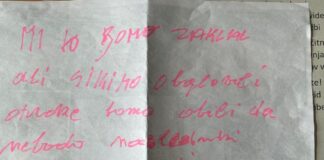 MI JO BOMO ZAKLAL
ali SIKIRO obglavili
otroke bomo ubili da
nebodo nasledniki